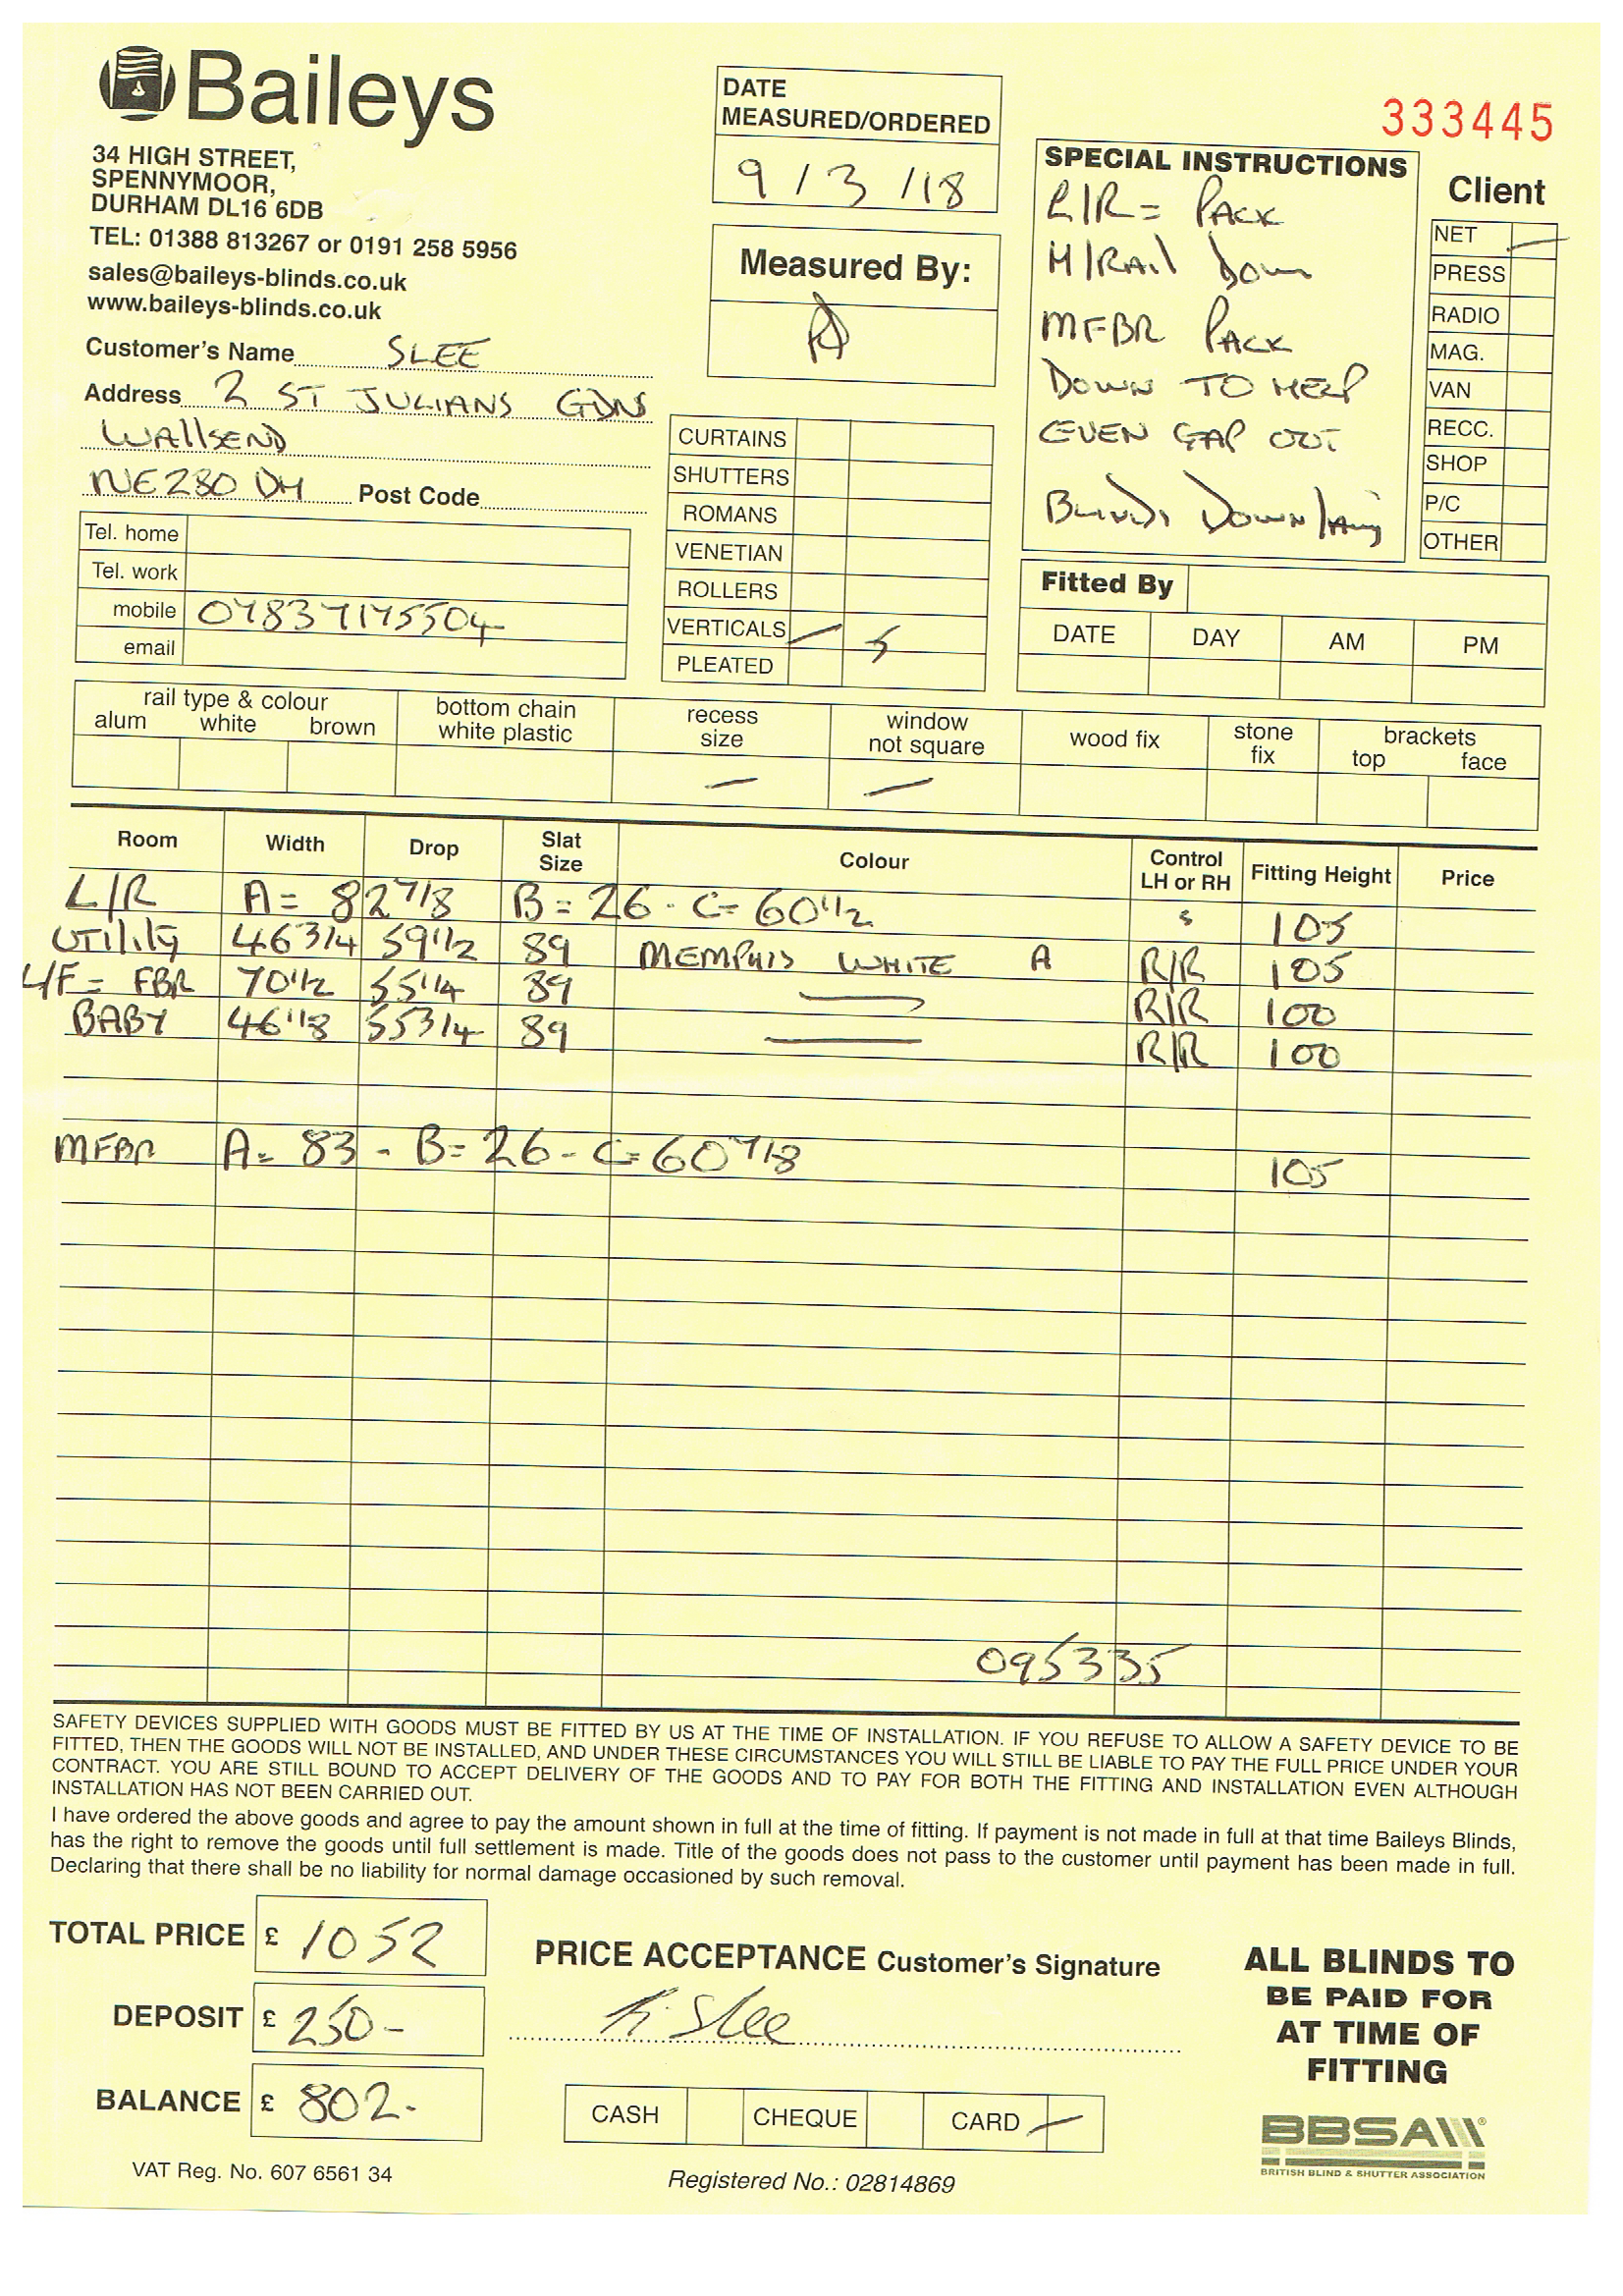 Baileys
34 HIGH STREET,
SPENNYMOOR,
DURHAM DL16 6DB
TEL: 01388 813267 or 0191 258 5956
sales@baileys-blinds.co.uk
www.baileys-blinds.co.uk
Customer's Name SLEE
Address 2 ST JULIANS GDNS
WAllSEND
NE280 DH Post Code
Tel. home
Tel. work
mobile 07837175504
email
DATE
MEASURED/ORDERED
9/3/18
Measured By:
CURTAINS
SHUTTERS
ROMANS
VENETIAN
ROLLERS
VERTICALS 5
PLEATED
333445
SPECIAL INSTRUCTIONS
L/R = PACK
H/RAil DOWN
MFBR PACK
DOWN TO HELP
EVEN GAP OUT
BLINDS DOWN
Client
NET
PRESS
RADIO
MAG.
VAN
RECC.
SHOP
P/C
OTHER
Fitted By
DATE DAY AM PM
rail type & colour
alum white brown
bottom chain
white plastic
recess
size
window
not square
wood fix
stone
fix
brackets
top face
Room Width Drop Slat Size Colour Control LH or RH Fitting Height Price
L/R A = 82 7/8 B = 26 - C = 60 1/2 S 105
UTIlity 46 3/4 59 1/2 89 MEMPHIS WHITE A R/R 105
L/F = FBR 70 1/2 55 1/4 89 R/R 100
BABY 46 1/8 55 3/4 89 R/R 100
MFBR A = 83 - B = 26 - C = 60 7/8 105
095335
SAFETY DEVICES SUPPLIED WITH GOODS MUST BE FITTED BY US AT THE TIME OF INSTALLATION. IF YOU REFUSE TO ALLOW A SAFETY DEVICE TO BE
FITTED, THEN THE GOODS WILL NOT BE INSTALLED, AND UNDER THESE CIRCUMSTANCES YOU WILL STILL BE LIABLE TO PAY THE FULL PRICE UNDER YOUR
CONTRACT. YOU ARE STILL BOUND TO ACCEPT DELIVERY OF THE GOODS AND TO PAY FOR BOTH THE FITTING AND INSTALLATION EVEN ALTHOUGH
INSTALLATION HAS NOT BEEN CARRIED OUT.
I have ordered the above goods and agree to pay the amount shown in full at the time of fitting. If payment is not made in full at that time Baileys Blinds,
has the right to remove the goods until full settlement is made. Title of the goods does not pass to the customer until payment has been made in full.
Declaring that there shall be no liability for normal damage occasioned by such removal.
TOTAL PRICE £ 1052
DEPOSIT £ 250-
BALANCE £ 802-
VAT Reg. No. 607 6561 34
PRICE ACCEPTANCE Customer's Signature
Slee
CASH CHEQUE CARD
Registered No.: 02814869
ALL BLINDS TO
BE PAID FOR
AT TIME OF
FITTING
BBSA®
BRITISH BLIND & SHUTTER ASSOCIATION